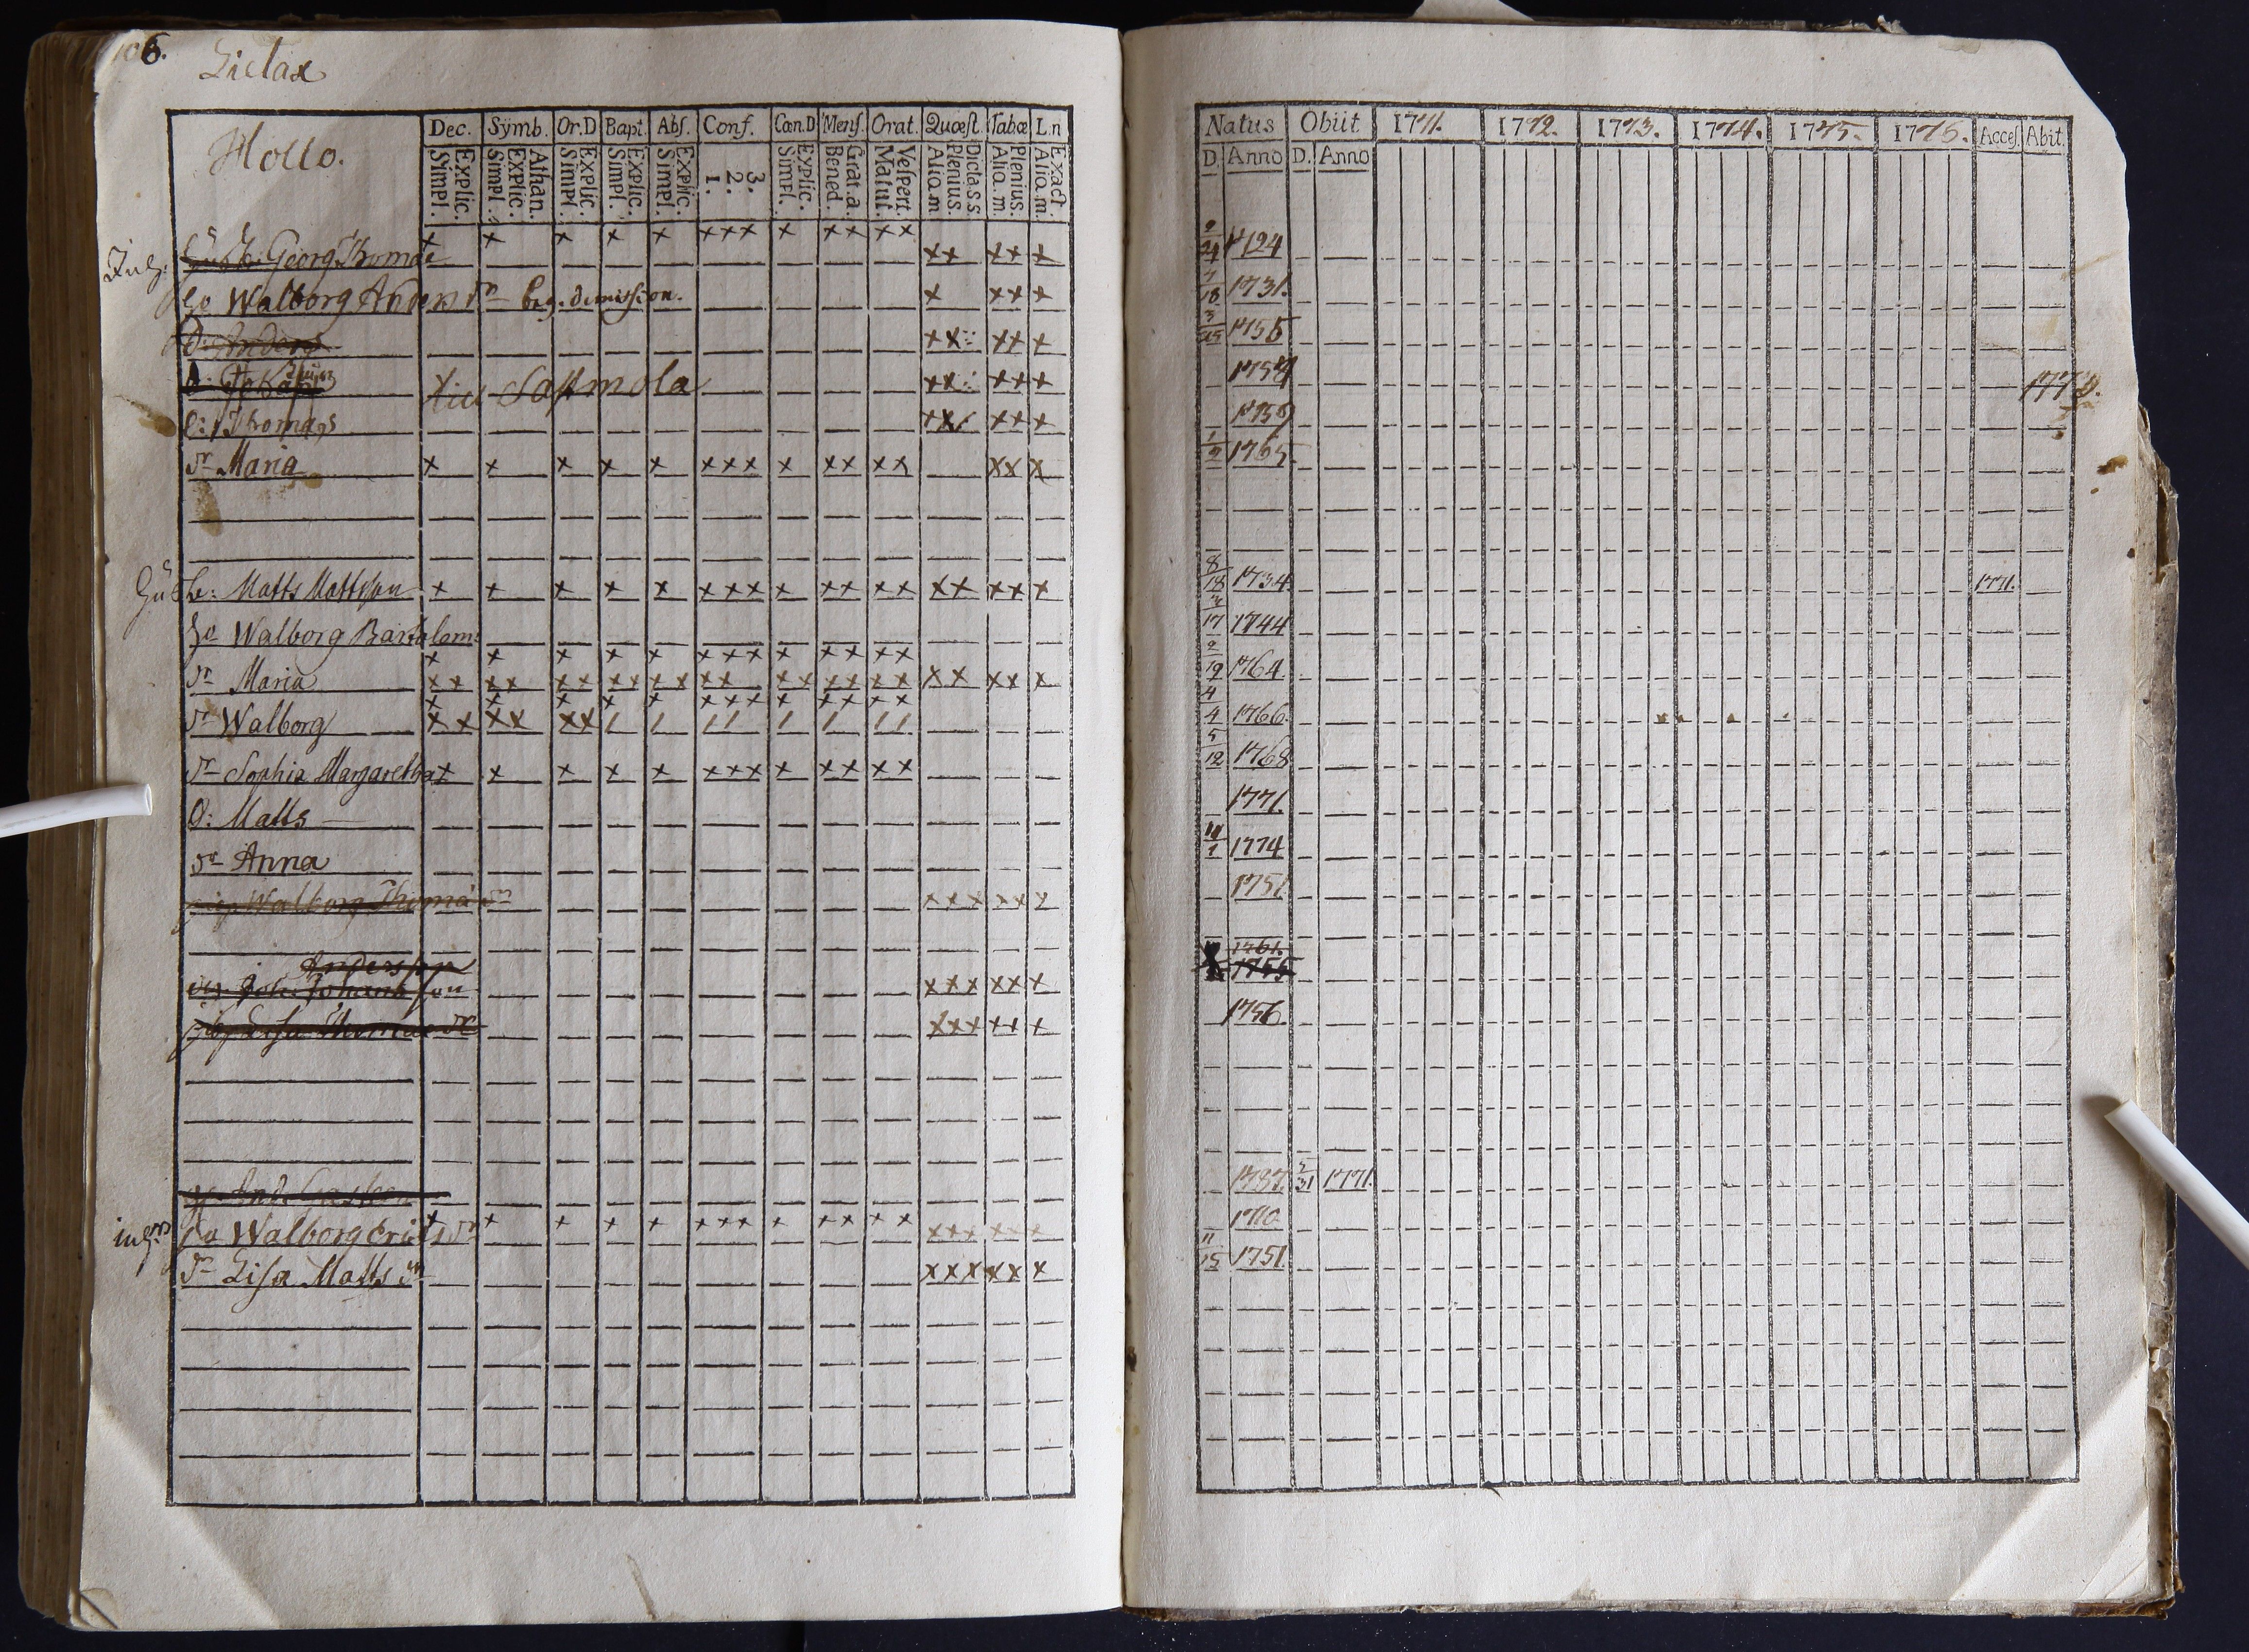 106.
Lietax
Hollo.
Dec. Symb. Or.D Bapt. Abs. Conf. Cœn.D Mens. Orat. Quæst. Tabæ L.n
Explic. Simpl. Athan. Explic. Simpl. Explic. Simpl. Explic. Simpl. Explic. Simpl. 3. 2. 1. Explic. Simpl. Grat.a. Bened. Vespert. Matut. Dicta.s.s Plenius. Aliq.m Plenius. Aliq.m. Exact. Aliq.m.
Georg Thomæ x x x x x xxx x xx xx xx xx x
Walborg Anders dr beg. dimission. x xx x
D: Anders xx xx x
Johan till Sastmola xx xx x
Thomas xx xx x
dr Maria x x x x x xxx x xx xx xx x
Matts Mattsson x x x x x xxx x xx xx xx xx x
Walborg Bartolom:
x x x x x xxx x xx xx
dr Maria xx xx xx xx xx xx xx xx xx xx xx x
x x x x x xxx x xx xx
dr Walborg xx xx xx / / // / / //
dr Sophia Margaretha x x x x x xxx x xx xx
D: Matts
dr Anna
Walborg Thomæ dr xxx xx x
Andersson
Joh: Johansson xxx xx x
Lisa Thomæ dr xxx xx x
Walborg Erics dr x x x x x xxx x xx xx xxx xx x
dr Lisa Matts dr xxx xx x
Natus Obiit 1771. 1772. 1773. 1774. 1775. 1776. Acces. Abit.
D. Anno D. Anno
1724
1731.
1755
1773.
1765.
8/18 1734. 1771.
17 1744
2/19 1764
4/4 1766.
5/12 1768
1771.
1774
1751
1761.
1755
1756.
1737. 31 1771.
1710.
11/15 1751.